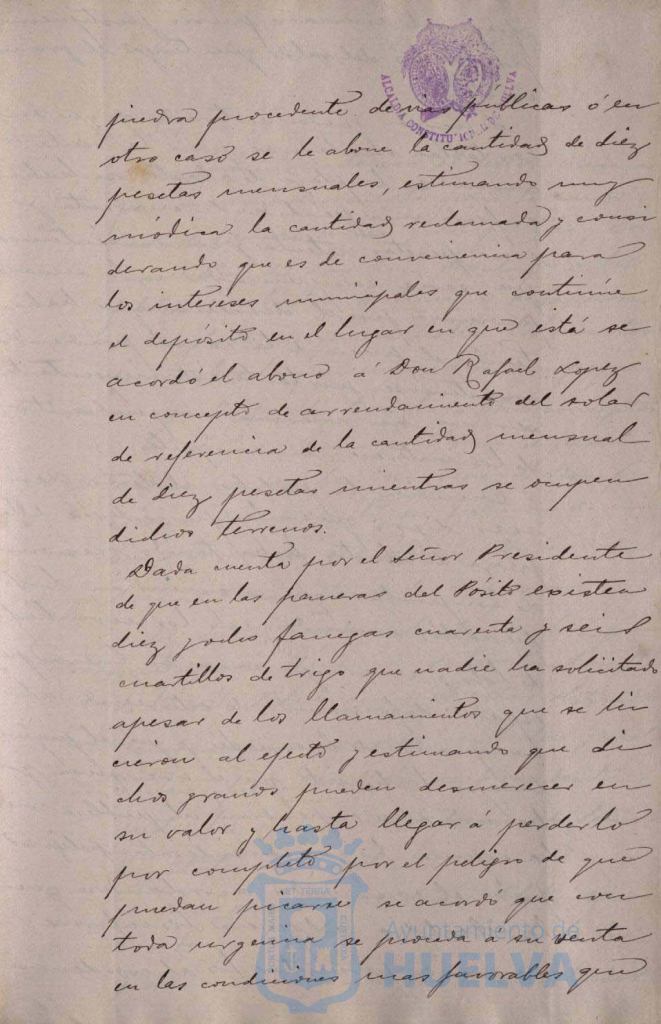 ALCALDIA CONSTITUCIONAL DE HUELVA
piedra procedente de vias públicas ó en
otro caso se le abone la cantidad de diez
pesetas mensuales, estimando muy
módica la cantidad reclamada y consi
derando que es de conveniencia para
los intereses municipales que continúe
el depósito en el lugar en que está se
acordó el abono á Don Rafael Lopez
en concepto de arrendamiento del solar
de referencia de la cantidad mensual
de diez pesetas mientras se ocupen
dichos terrenos.
Dada cuenta por el Señor Presidente
de que en las paneras del Pósito existen
diez y ocho fanegas cuarenta y seis
cuartillos de trigo que nadie ha solicitado
apesar de los llamamientos que se hi
cieron al efecto y estimando que di
chos granos pueden desmerecer en
su valor y hasta llegar á perderlo
por completo por el peligro de que
puedan picarse se acordó que con
toda urgencia se proceda á su venta
en las condiciones mas favorables que
Ayuntamiento de
HUELVA